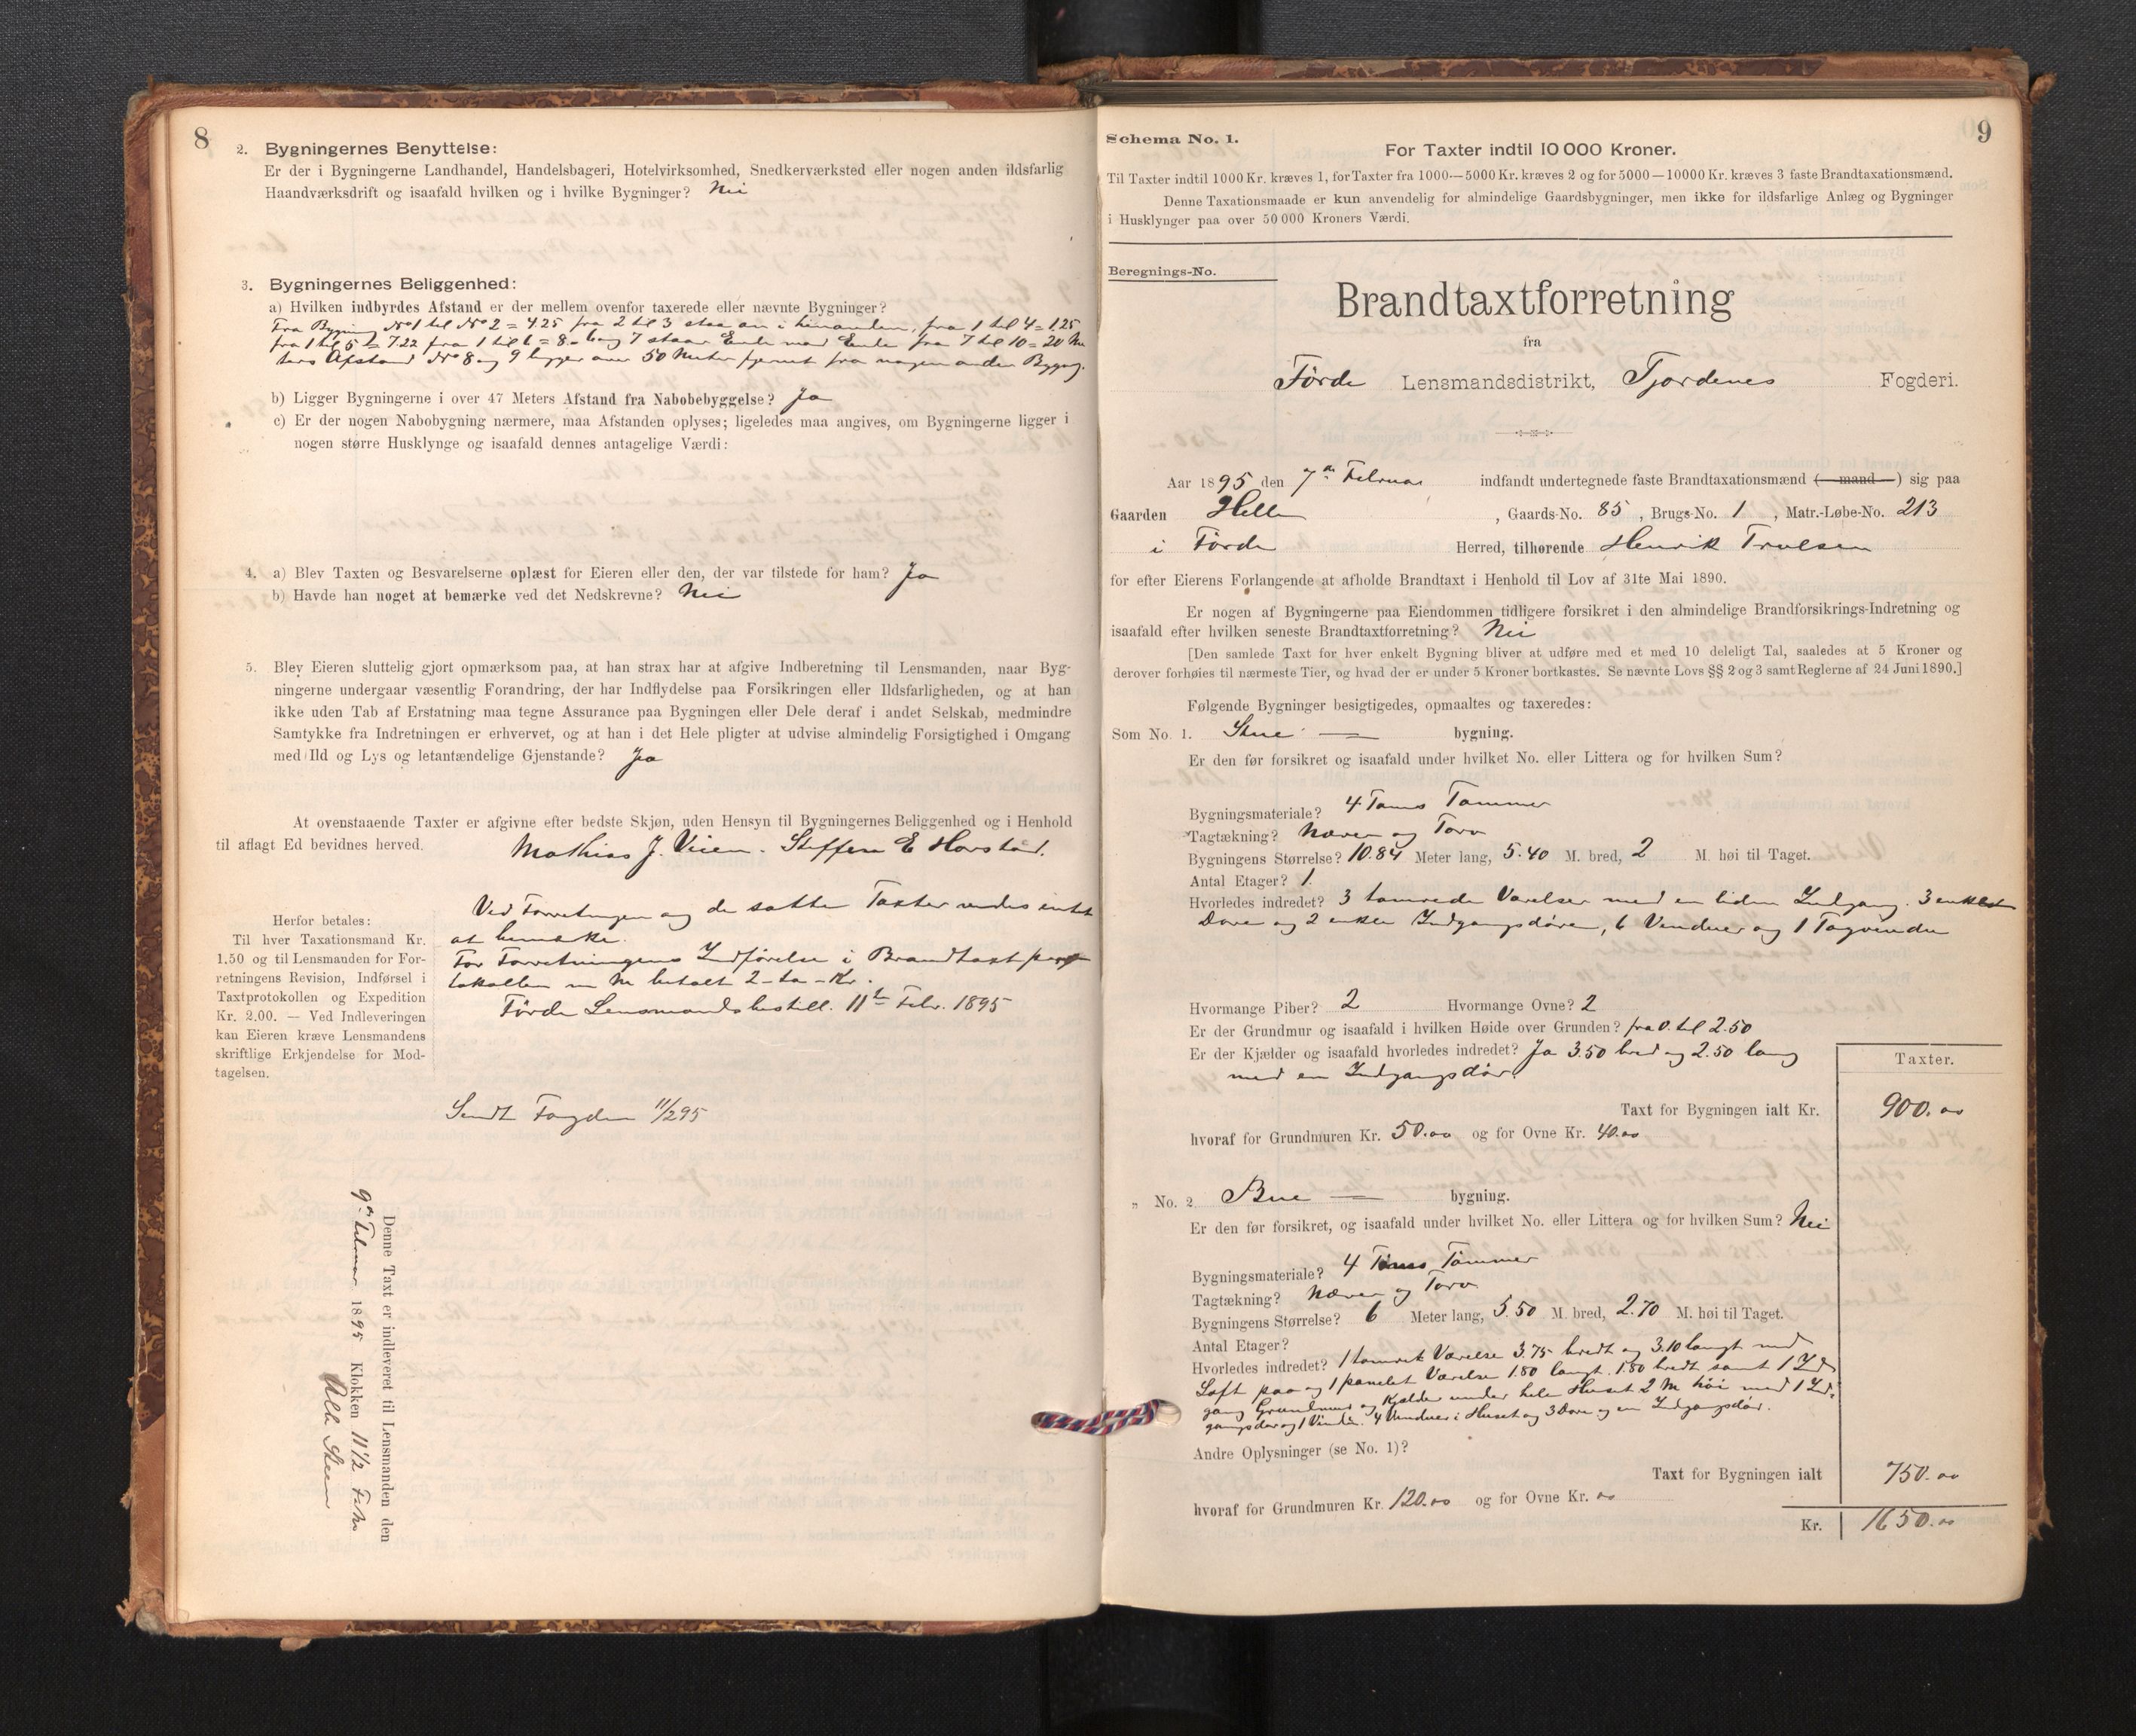 8
2. Bygningernes Benyttelse:
Er der i Bygningerne Landhandel, Handelsbageri, Hotelvirksomhed, Snedkerværksted eller nogen anden ildsfarlig
Haandværksdrift og isaafald hvilken og i hvilke Bygninger? Nei
3. Bygningernes Beliggenhed:
a) Hvilken indbyrdes Afstand er der mellem ovenfor taxerede eller nævnte Bygninger?
Fra Bygning No 1 til No 2 = 4.25 fra 2 til 3 staar an i hinanden, fra 1 til 4 = 1.25
fra 1 til 5 = 7.22 fra 1 til 6 = 8. 6 og 7 staar Ende mod Ende fra 7 til 10 = 20 Me
ters Afstand No 8 og 9 ligger over 50 Meter fjernet fra nogen anden Bygng.
b) Ligger Bygningerne i over 47 Meters Afstand fra Nabobebyggelse? Ja
c) Er der nogen Nabobygning nærmere, maa Afstanden oplyses; ligeledes maa angives, om Bygningerne ligger i
nogen større Husklynge og isaafald dennes antagelige Værdi:
4. a) Blev Taxten og Besvarelserne oplæst for Eieren eller den, der var tilstede for ham? Ja
b) Havde han noget at bemærke ved det Nedskrevne? Nei
5. Blev Eieren sluttelig gjort opmærksom paa, at han strax har at afgive Indberetning til Lensmanden, naar Byg-
ningerne undergaar væsentlig Forandring, der har Indflydelse paa Forsikringen eller Ildsfarligheden, og at han
ikke uden Tab af Erstatning maa tegne Assurance paa Bygningen eller Dele deraf i andet Selskab, medmindre
Samtykke fra Indretningen er erhvervet, og at han i det Hele pligter at udvise almindelig Forsigtighed i Omgang
med Ild og Lys og letantændelige Gjenstande? Ja
At ovenstaaende Taxter er afgivne efter bedste Skjøn, uden Hensyn til Bygningernes Beliggenhed og i Henhold
til aflagt Ed bevidnes herved. Mathias J. Vieen. Steffen E Horstad.
Ved Forretningen og de satte Taxter vides intet
at bemærke.
For Forretningens Indførelse i Brandtaxt pro
tokollen er betalt 2 - to - Kr.
Förde Lensmandsbestill. 11te Febr. 1895
Herfor betales:
Til hver Taxationsmand Kr.
1.50 og til Lensmanden for For-
retningens Revision, Indførsel i
Taxtprotokollen og Expedition
Kr. 2.00. — Ved Indleveringen
kan Eieren kræve Lensmandens
skriftlige Erkjendelse for Mod-
tagelsen.
Sendt Fogden 11/2 95
Denne Taxt er indleveret til Lensmanden den
9de Februar 1895 Klokken 11 1/2
9
Schema No. 1.
For Taxter indtil 10 000 Kroner.
Til Taxter indtil 1000 Kr. kræves 1, for Taxter fra 1000—5000 Kr. kræves 2 og for 5000—10000 Kr. kræves 3 faste Brandtaxationsmænd.
Denne Taxationsmaade er kun anvendelig for almindelige Gaardsbygninger, men ikke for ildsfarlige Anlæg og Bygninger
i Husklynger paa over 50 000 Kroners Værdi.
Beregnings-No.
Brandtaxtforretning
fra
Förde Lensmandsdistrikt, Fjordenes Fogderi.
Aar 1895 den 7de Februar indfandt undertegnede faste Brandtaxationsmænd (mand) sig paa
Gaarden Helle, Gaards-No. 85, Brugs-No. 1, Matr.-Løbe-No. 213
i Förde Herred, tilhørende Henrik Trulsen
for efter Eierens Forlangende at afholde Brandtaxt i Henhold til Lov af 31te Mai 1890.
Er nogen af Bygningerne paa Eiendommen tidligere forsikret i den almindelige Brandforsikrings-Indretning og
isaafald efter hvilken seneste Brandtaxtforretning? Nei
[Den samlede Taxt for hver enkelt Bygning bliver at udføre med et med 10 deleligt Tal, saaledes at 5 Kroner og
derover forhøies til nærmeste Tier, og hvad der er under 5 Kroner bortkastes. Se nævnte Lovs §§ 2 og 3 samt Reglerne af 24 Juni 1890.]
Følgende Bygninger besigtigedes, opmaaltes og taxeredes:
Som No. 1. Stue — bygning.
Er den før forsikret og isaafald under hvilket No. eller Littera og for hvilken Sum?
Bygningsmateriale? 4 Toms Tømmer
Tagtækning? Næver og Torv
Bygningens Størrelse? 10.84 Meter lang, 5.40 M. bred, 2 M. høi til Taget.
Antal Etager? 1.
Hvorledes indredet? 3 tømrede Værelser med en liden Indgang. 3 enkelte
Døre og 2 enkle Indgangsdøre, 6 Vinduer og 1 Tagvindu
Hvormange Piber? 2 Hvormange Ovne? 2
Er der Grundmur og isaafald i hvilken Høide over Grunden? fra 0 til 2.50
Er der Kjælder og isaafald hvorledes indredet? Ja 3.50 bred og 2.50 lang
med en Indgangsdør.
Taxter.
Taxt for Bygningen ialt Kr. 900.00
hvoraf for Grundmuren Kr. 50.00 og for Ovne Kr. 40.00
„ No. 2 Bue — bygning.
Er den før forsikret, og isaafald under hvilket No. eller Littera og for hvilken Sum? Nei
Bygningsmateriale? 4 Toms Tømmer
Tagtækning? Næver og Torv
Bygningens Størrelse? 6 Meter lang, 5.50 M. bred, 2.70 M. høi til Taget.
Antal Etager?
Hvorledes indredet? 1 tømret Værelse 3.75 bredt og 3.10 langt med
Loft paa og 1 panelet Værelse 1.80 langt. 1.80 bredt samt 1 Ind
gang Grundmur og Kjælder under hele Huset 2 M høi med 1 Ind-
gangsdør og 1 Vindu. 4 Vinduer i Huset og 3 Døre og en Indgangsdør.
Andre Oplysninger (se No. 1)?
Taxt for Bygningen ialt 750.00
hvoraf for Grundmuren Kr. 120.00 og for Ovne Kr. 00
Kr. 1650.00